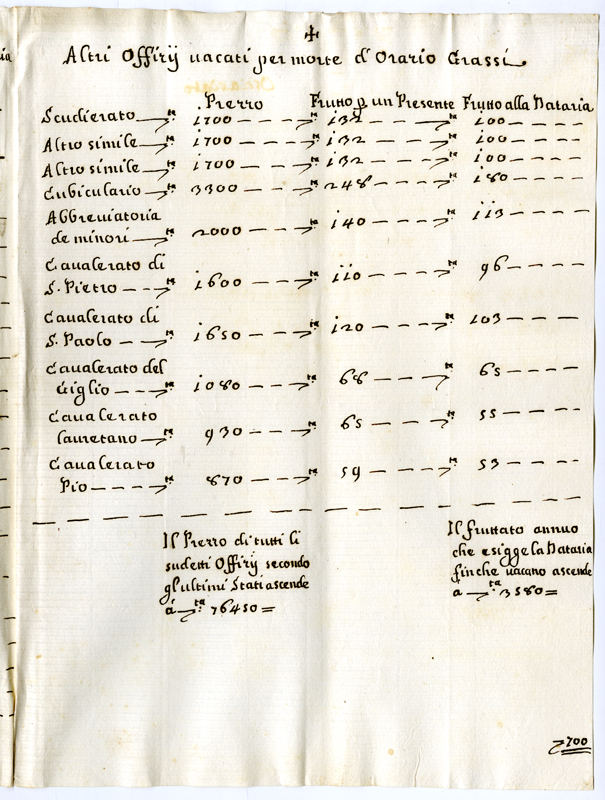 ✠
Altri Offitij uacati per morte d'Orazio Grassi
Prezzo Frutto p un Presente Frutto alla Dataria
Scudierato 1700 132 100
Altro simile 1700 132 100
Altro simile 1700 132 100
Cubiculario 3300 248 180
Abbreuiatoria
de minori 2000 140 113
Caualerato di
S. Pietro 1600 110 96
Caualerato di
S. Paolo 1650 120 103
Caualerato del
Giglio 1080 68 65
Caualerato
lauretano 930 65 55
Caualerato
Pio 870 59 53
Il Prezzo di tutti li
sudetti Offitij secondo
gl'ultimi Stati ascende
à 76450 =
Il fruttato annuo
che esigge la Dataria
finche uacano ascende
a 3580 =